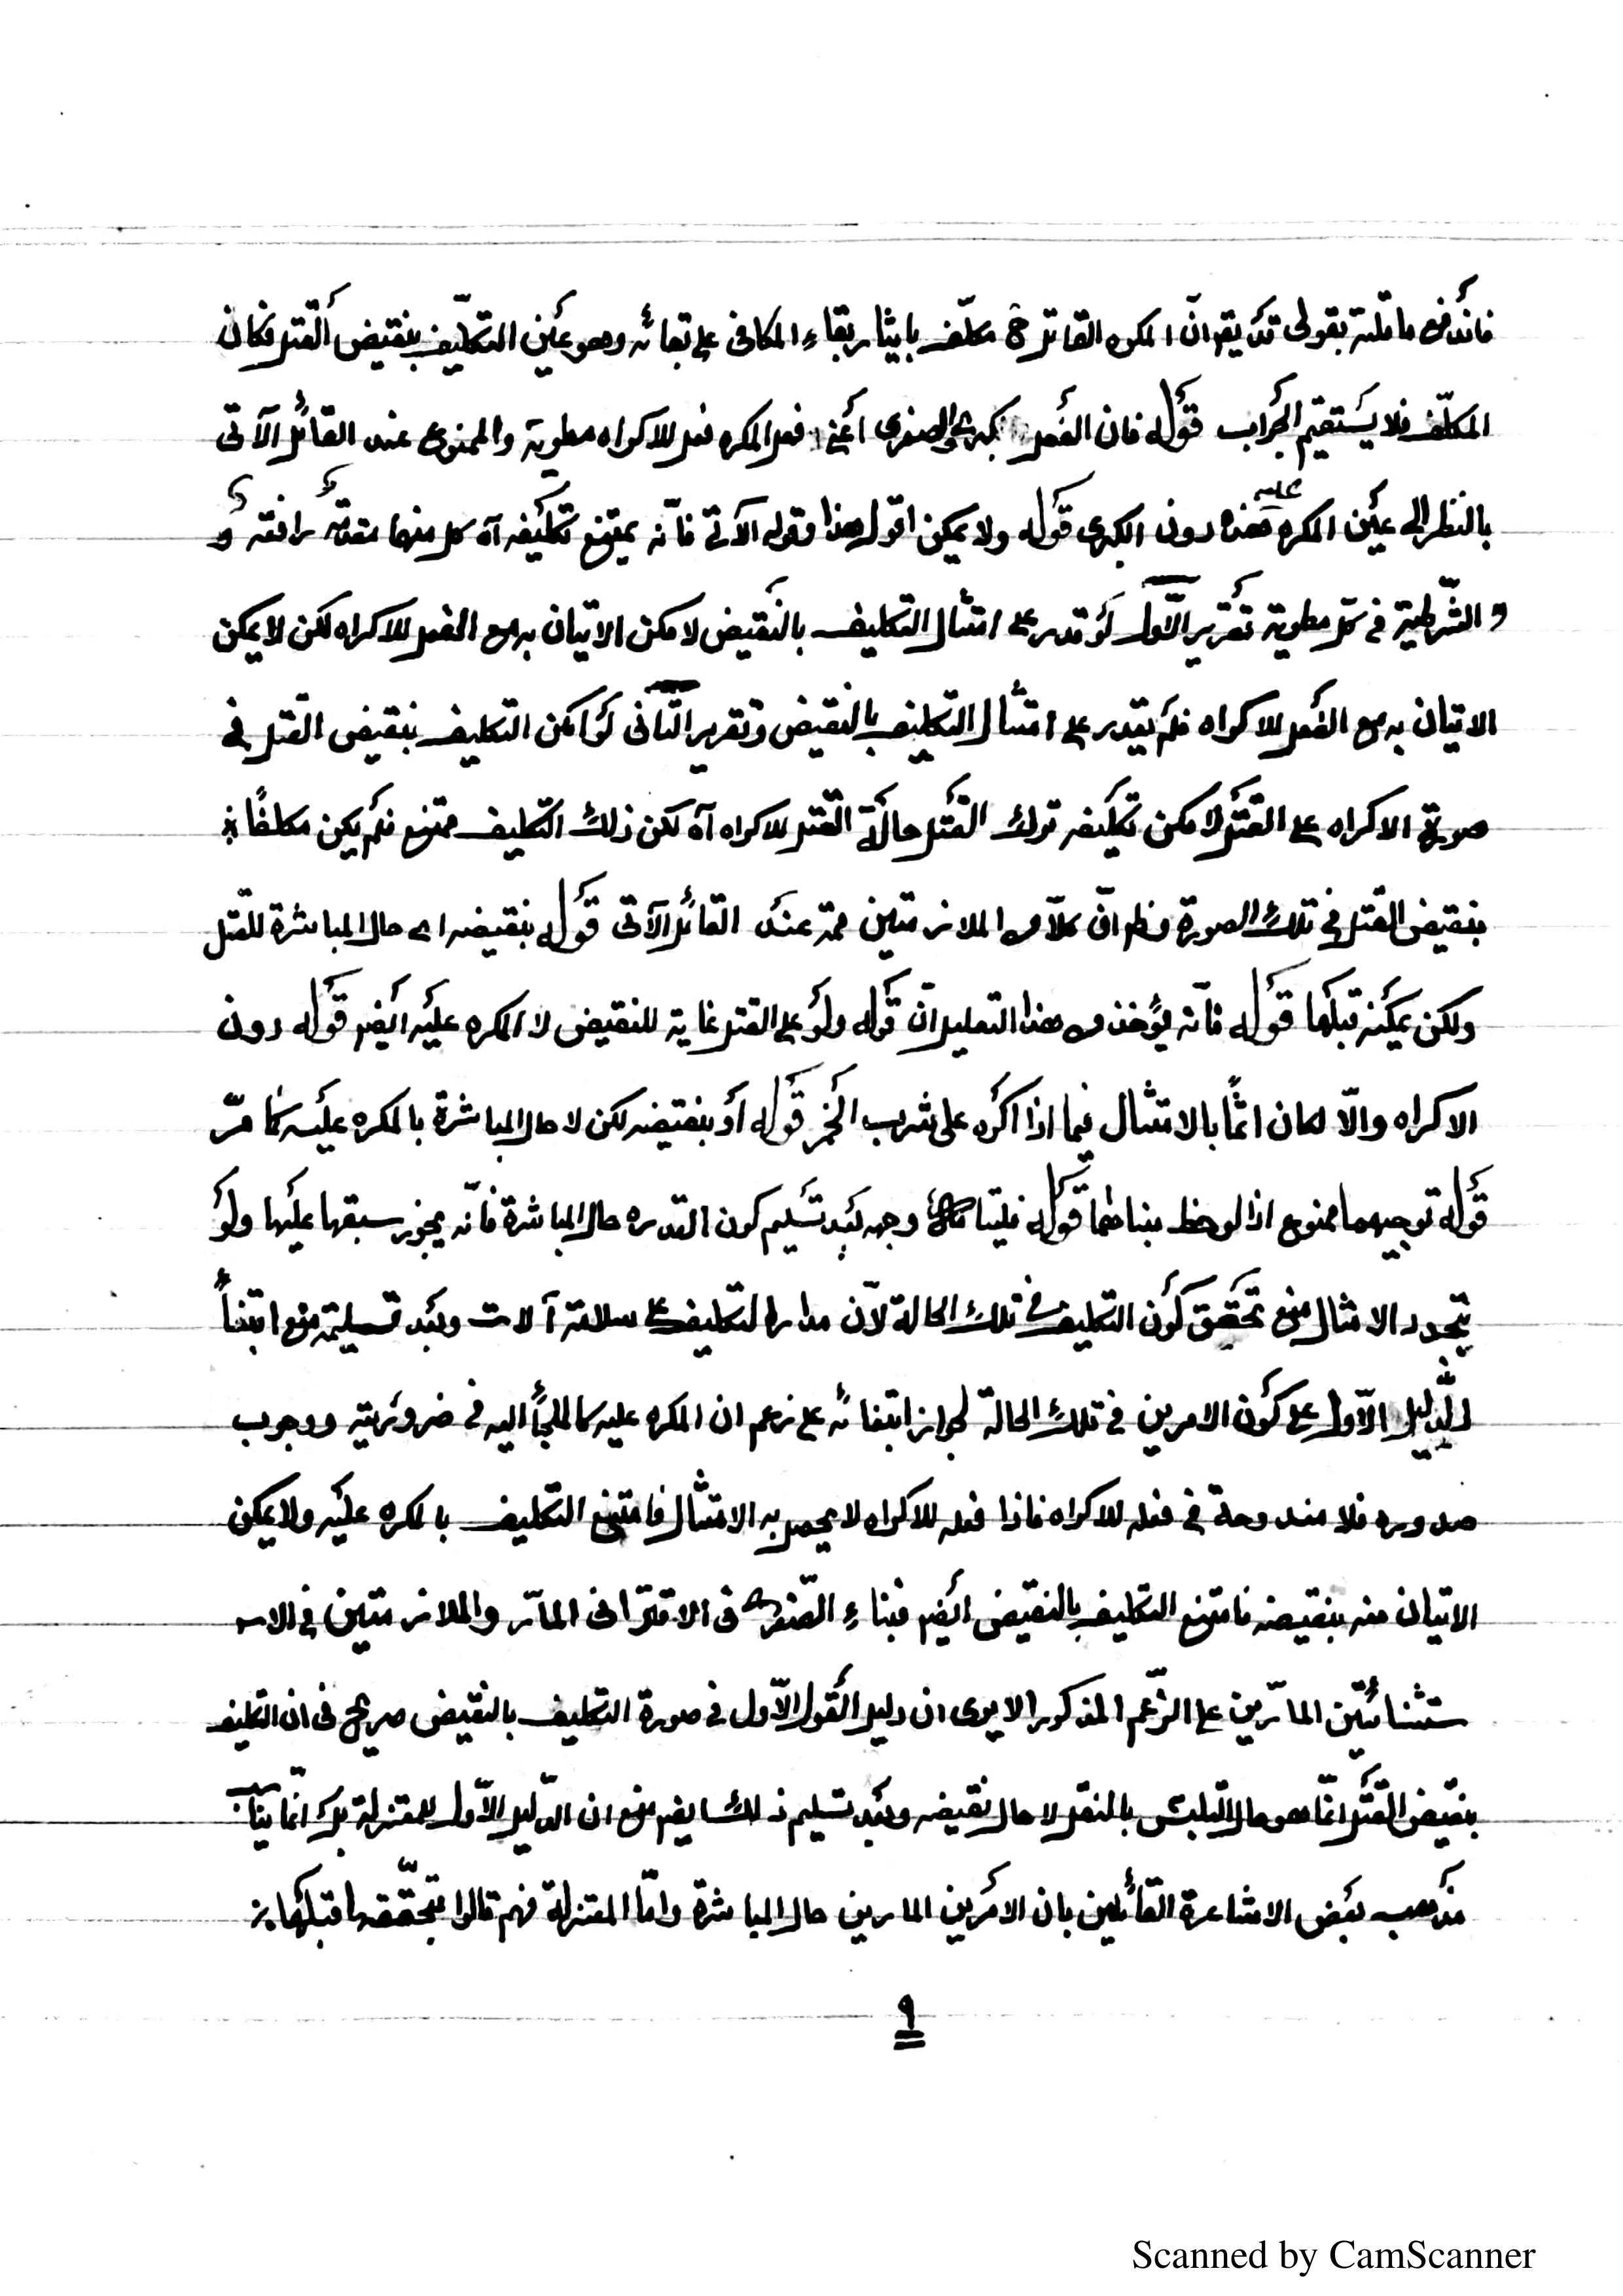 فاندفع ما قلته بقولي قد يقر ان المكره القاتل ح مكلف بايثار بقاء المكافي على بقائه وهو عين التكليف بنقيض القتل فكان
المكلف فلا يستقيم الجواب قوله فان الفعل كبرى والصغرى اعني فعل المكره فعل للاكراه مطوية والممنوع عند القائل الآتي
بالنظر الى عين المكره عليه هذه دون الكبرى قوله ولا يمكن اقول هذا وقوله الآتي فانه يمتنع تكليفه آه كل منهما مقدمة رافعة و
و الشرطية في كل مطوية تقرير الاول لو قدر على امتثال التكليف بالنقيض لامكن الاتيان به مع الفعل للاكراه لكن لا يمكن
الاتيان به مع الفعل للاكراه فلم يقدر على امتثال التكليف بالنقيض وتقرير الثاني لو امكن التكليف بنقيض القتل في
صورة الاكراه على القتل لامكن تكليفه ترك القتل حالة القتل للاكراه آه لكن ذلك التكليف ممتنع فلم يكن مكلفًا
بنقيض القتل في تلك الصورة فظهر ان كلا من الملازمتين ممة عند القائل الآتي قوله بنقيضه اى حال المباشرة للقتل
ولكن يمكنه قبلها قوله فانه يؤخذ من هذا التعليل ان قوله ولو على القتل غاية للنقيض لا المكره عليه ايضر قوله دون
الاكراه والّا لكان اثمًا بالامتثال فيما اذا اكره على شرب الخمر قوله أو بنقيضه لكن لا حال المباشرة بالمكره عليه كما مرّ
قوله توجيههما ممنوع اذا لوحظ بناءهما قوله فليتأمل وجهه بعد تسليم كون القدره حال المباشرة فانه يجوز سبقها عليها ولو
بتجدد الامثال منع تحقق كون التكليف في تلك الحالة لأن مدار التكليف على سلامة آلات وبعد تسليمه منع ابتناء
الدليل الاول على كون الامرين في تلك الحالة لجواز ابتنائه على زعم ان المكره عليه كالملجأ اليه في ضروريته ووجوب
صدوره فلا مندوحة في فعله للاكراه فاذا فعله للاكراه لا يحصل به الامتثال فامتنع التكليف بالمكره عليه ولا يمكن
الاتيان منه بنقيضه فامتنع التكليف بالنقيض ايضر فبناء الصغرى في الاقتراني المارّ والملازمتين في الاسـ
ـتثنائيتين المارّين على الزعم المذكور الا يرى ان دليل القول الاول في صورة التكليف بالنقيض صريح في ان التكليف
بنقيض القتل انما هو حال التلبس بالفعل لا حال نقيضه وبعد تسليم ذلك ايضر منع ان الدليل الاول للمعتزلة بل انما يناسب
مذهب بعض الاشاعرة القائلين بان الامرين المارين حال المباشرة واما المعتزلة فهم قالوا بتحققهما قبلها
٩
Scanned by CamScanner